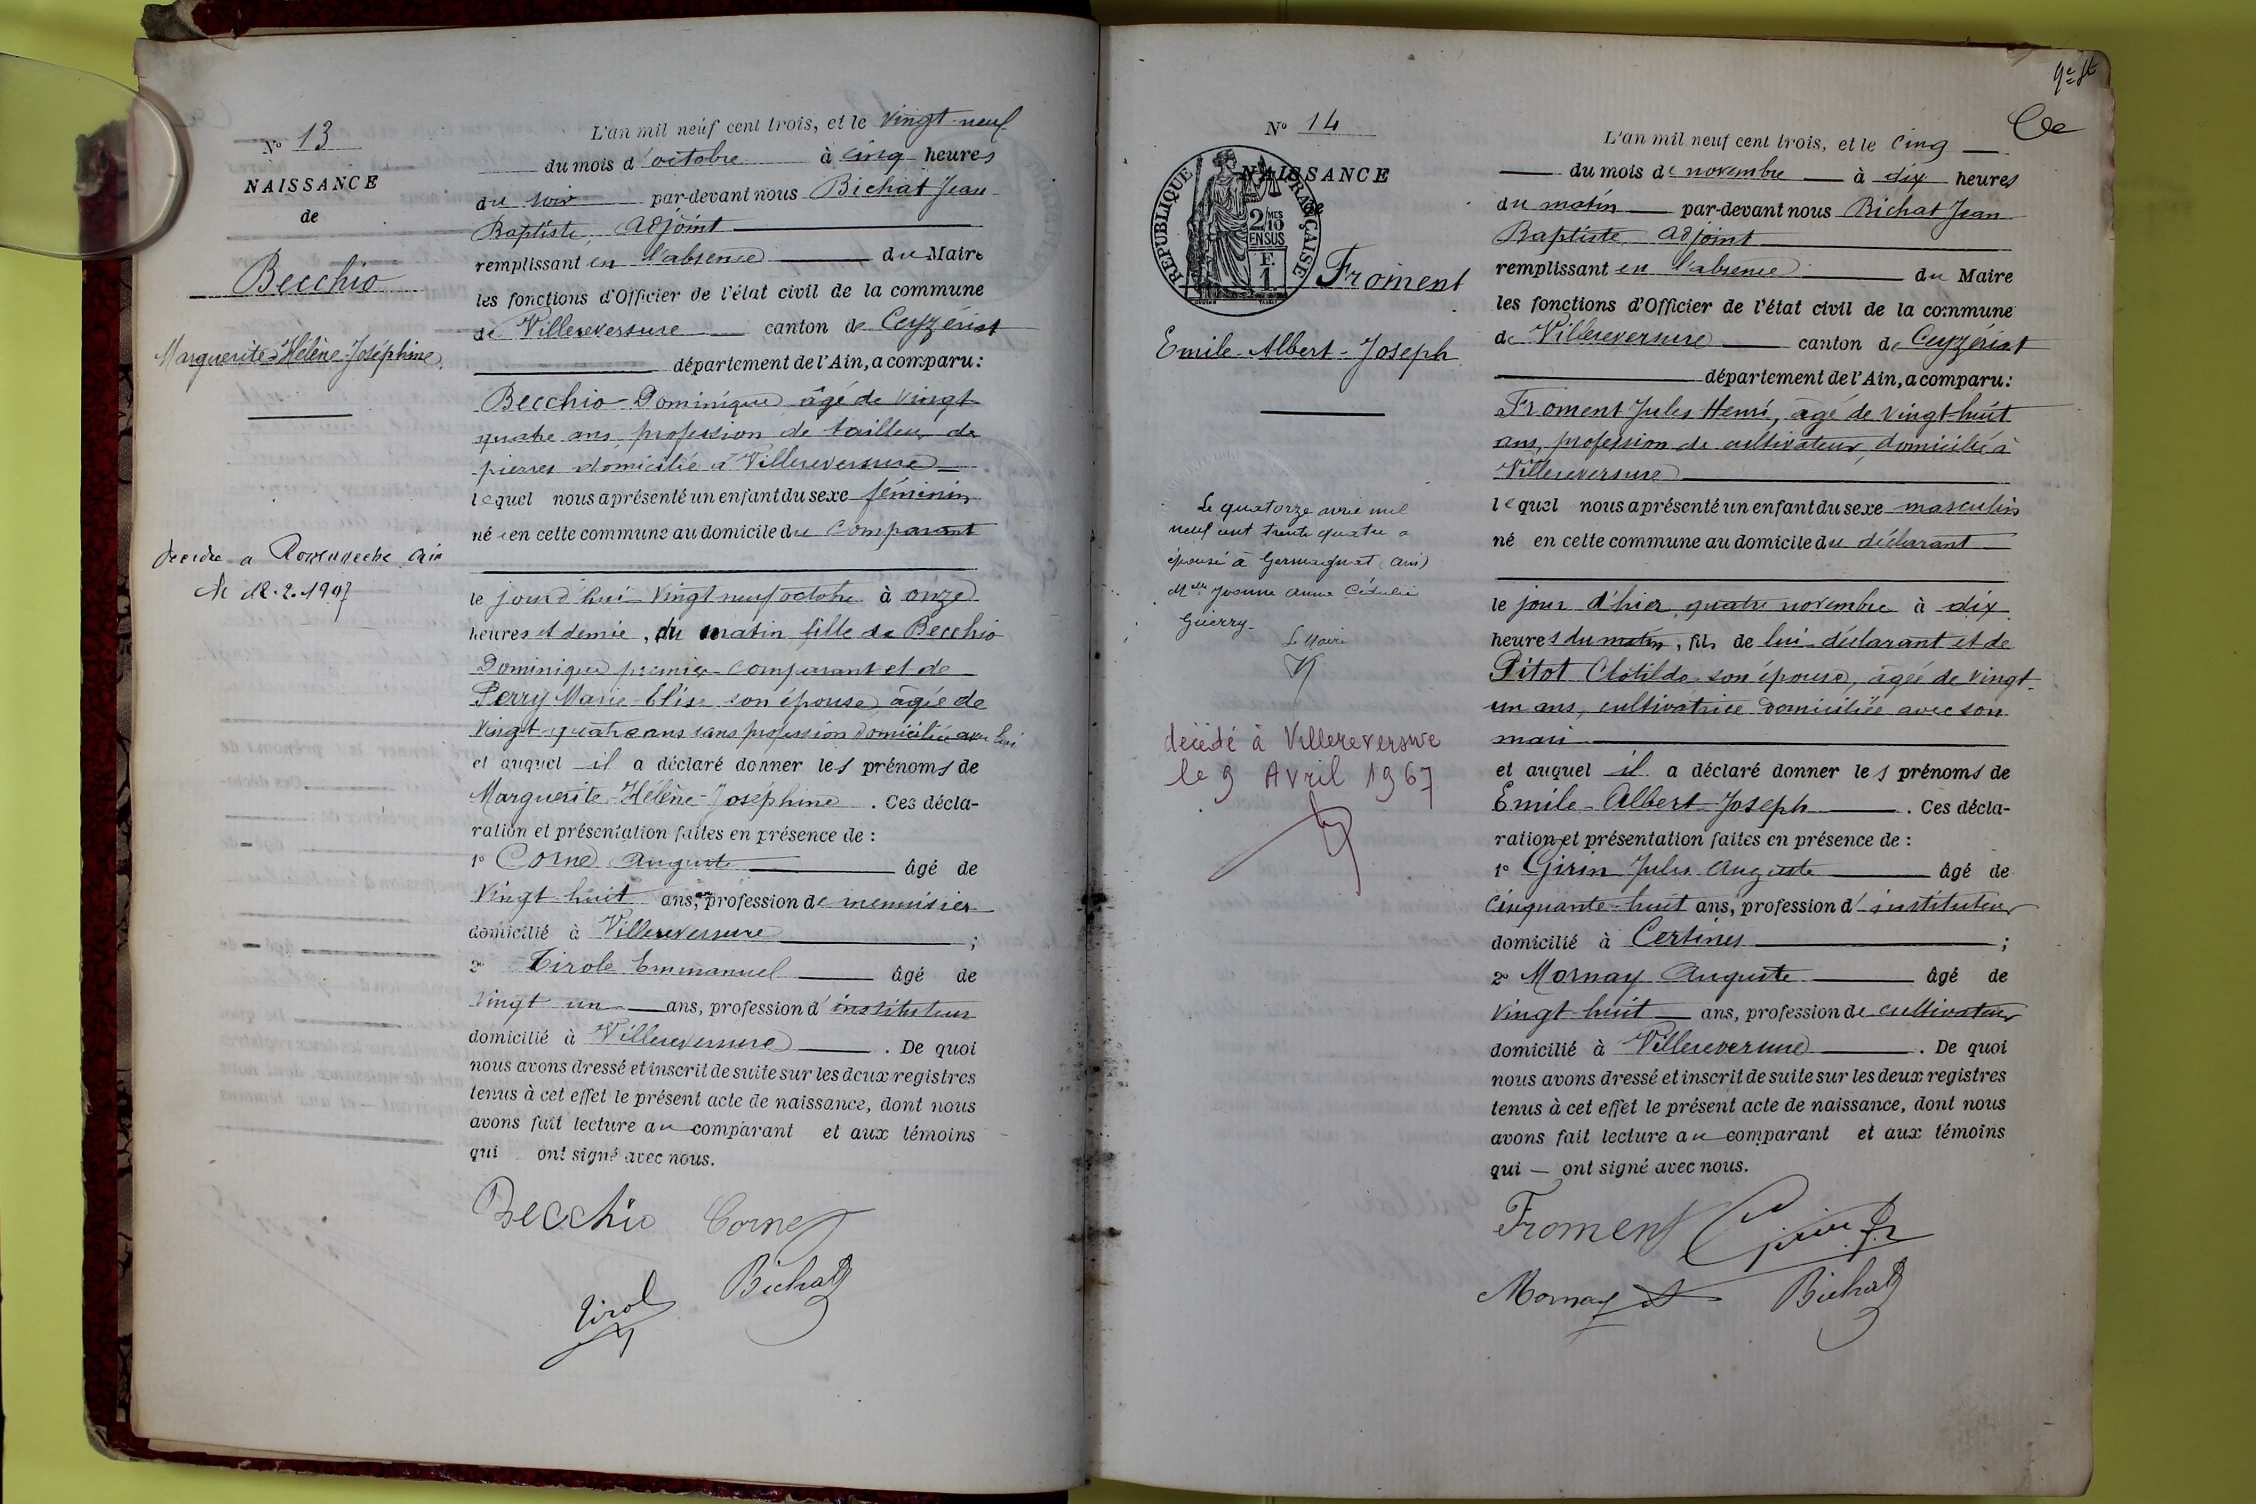 No 13
NAISSANCE
de
Becchio
Marguerite-Hélène-Joséphine
décédée a
le 12.2.19
L'an mil neuf cent trois, et le vingt-neuf
du mois d'octobre à cinq heures
du soir par-devant nous Bichat Jean
Baptiste, Adjoint
remplissant en l'absence du Maire
les fonctions d'Officier de l'état civil de la commune
de Villereversure canton de Ceyzériat
département de l'Ain, a comparu:
Becchio Dominique âgé de vingt
quatre ans, profession de tailleur de
pierres domicilié à Villereversure
lequel nous a présenté un enfant du sexe féminin
née en cette commune au domicile du comparant
le jourd'hui vingt neuf octobre à onze
heures et demie, du matin fille de Becchio
Dominique premier comparant et de
Perry Marie-Elise son épouse, âgée de
vingt-quatre ans sans profession domiciliée avec lui
et auquel il a déclaré donner les prénoms de
Marguerite-Hélène-Joséphine. Ces décla-
ration et présentation faites en présence de :
1º Corne Auguste âgé de
vingt-huit ans, profession de menuisier
domicilié à Villereversure ;
2º Tirole Emmanuel âgé de
vingt un ans, profession d'instituteur
domicilié à Villereversure. De quoi
nous avons dressé et inscrit de suite sur les deux registres
tenus à cet effet le présent acte de naissance, dont nous
avons fait lecture au comparant et aux témoins
qui ont signé avec nous.
Becchio Corne
Bichat
Tirole
9e
No 14
NAISSANCE
RÉPUBLIQUE FRANÇAISE
2 MES
10
EN SUS
F.
1
Froment
Emile-Albert-Joseph
Le quatorze avril mil
neuf cent trente quatre a
épousé à Germagnat (Ain)
Melle Jeanne Anne
Guerry
Le Maire
décédé à Villereversure
le 9 Avril 1967
L'an mil neuf cent trois, et le cinq
du mois de novembre à dix heures
du matin par-devant nous Bichat Jean
Baptiste Adjoint
remplissant en l'absence du Maire
les fonctions d'Officier de l'état civil de la commune
de Villereversure canton de Ceyzériat
département de l'Ain, a comparu:
Froment Jules Henri, âgé de vingt-huit
ans, profession de cultivateur, domicilié à
Villereversure
lequel nous a présenté un enfant du sexe masculin
né en cette commune au domicile du déclarant
le jour d'hier quatre novembre à dix
heures du matin, fils de lui déclarant et de
Pitot Clotilde son épouse, âgée de vingt-
un ans, cultivatrice domiciliée avec son
mari
et auquel il a déclaré donner les prénoms de
Emile-Albert-Joseph. Ces décla-
ration et présentation faites en présence de :
1º Girin Jules Auguste âgé de
cinquante-huit ans, profession d'instituteur
domicilié à Certines ;
2º Mornay Auguste âgé de
vingt-huit ans, profession de cultivateur
domicilié à Villereversure. De quoi
nous avons dressé et inscrit de suite sur les deux registres
tenus à cet effet le présent acte de naissance, dont nous
avons fait lecture au comparant et aux témoins
qui ont signé avec nous.
Froment Girin
Mornay Bichat